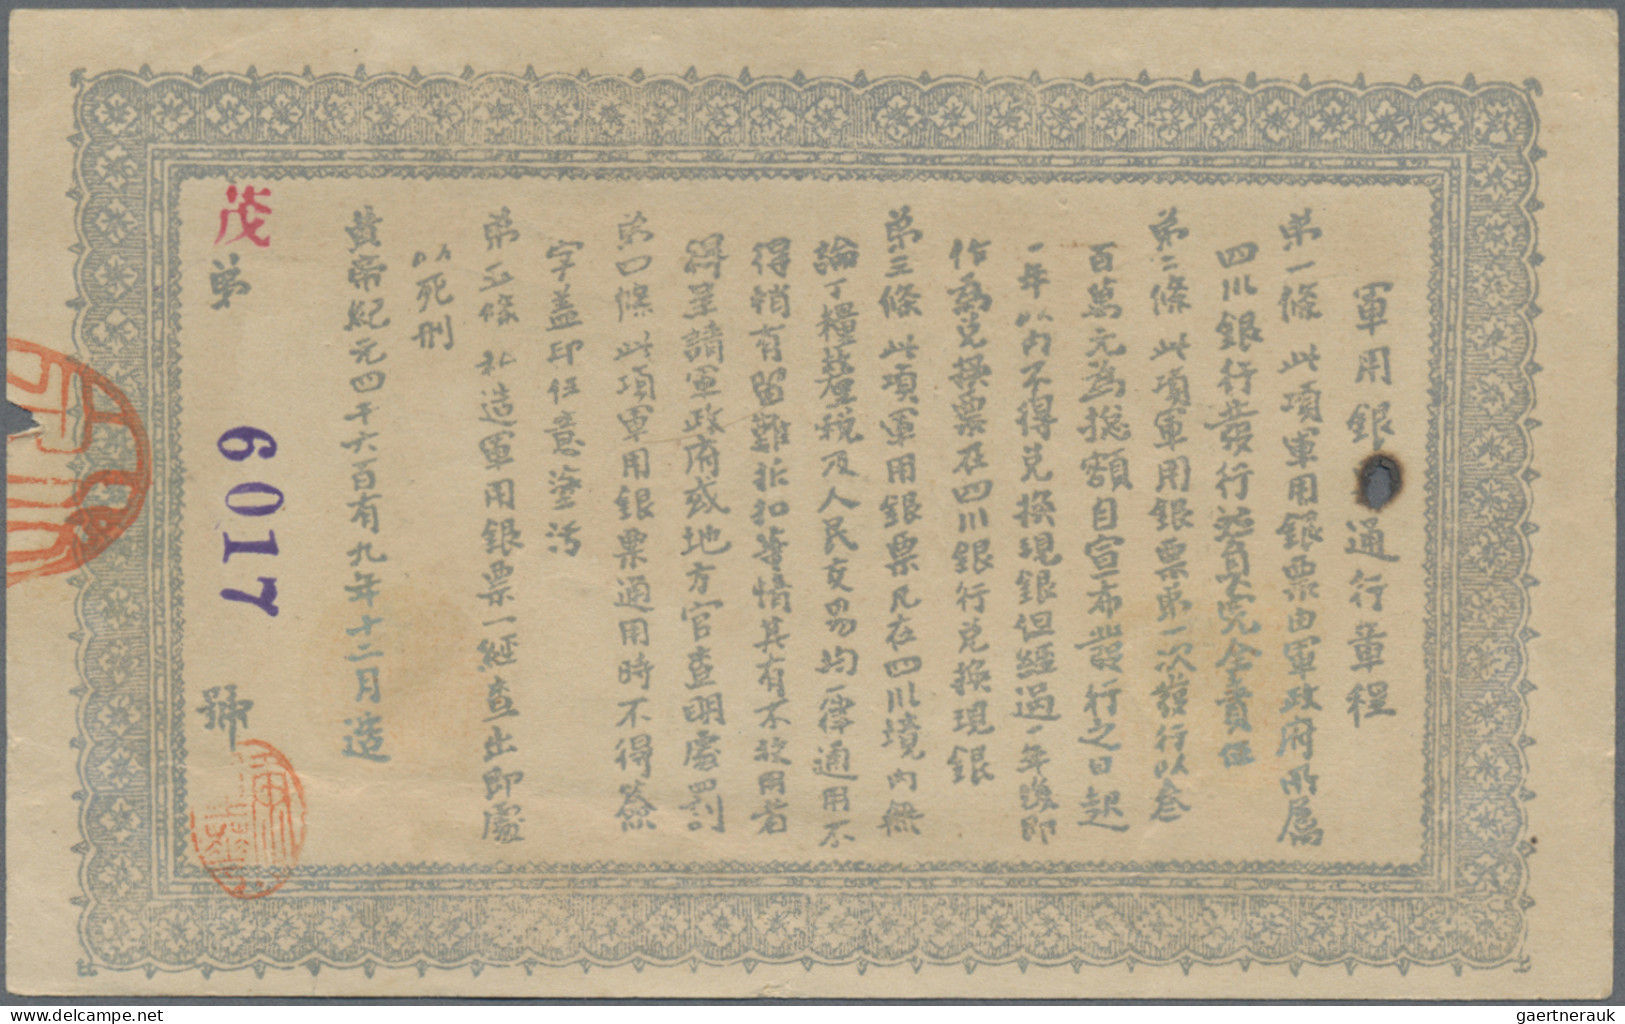 軍用銀通行章程
第一條 此項軍用銀票由軍政府所屬
四川銀行發行並負完全責任
第二條 此項軍用銀票第一次發行以叁
百萬元爲總額自宣布發行之日起
一年以內不得兌換現銀但經過一年後即
作爲兌換票在四川銀行兌換現銀
第三條 此項軍用銀票凡在四川境內無
論丁糧釐稅及人民交易均一律通用不
得稍有留難折扣等情其有不收用者
得呈請軍政府或地方官查明處罰
第四條 此項軍用銀票通用時不得簽
字蓋印任意塗污
第五條 私造軍用銀票一經查出即處
以死刑
黃帝紀元四千六百有九年十二月造
茂第 6017 號
gaertnerauk